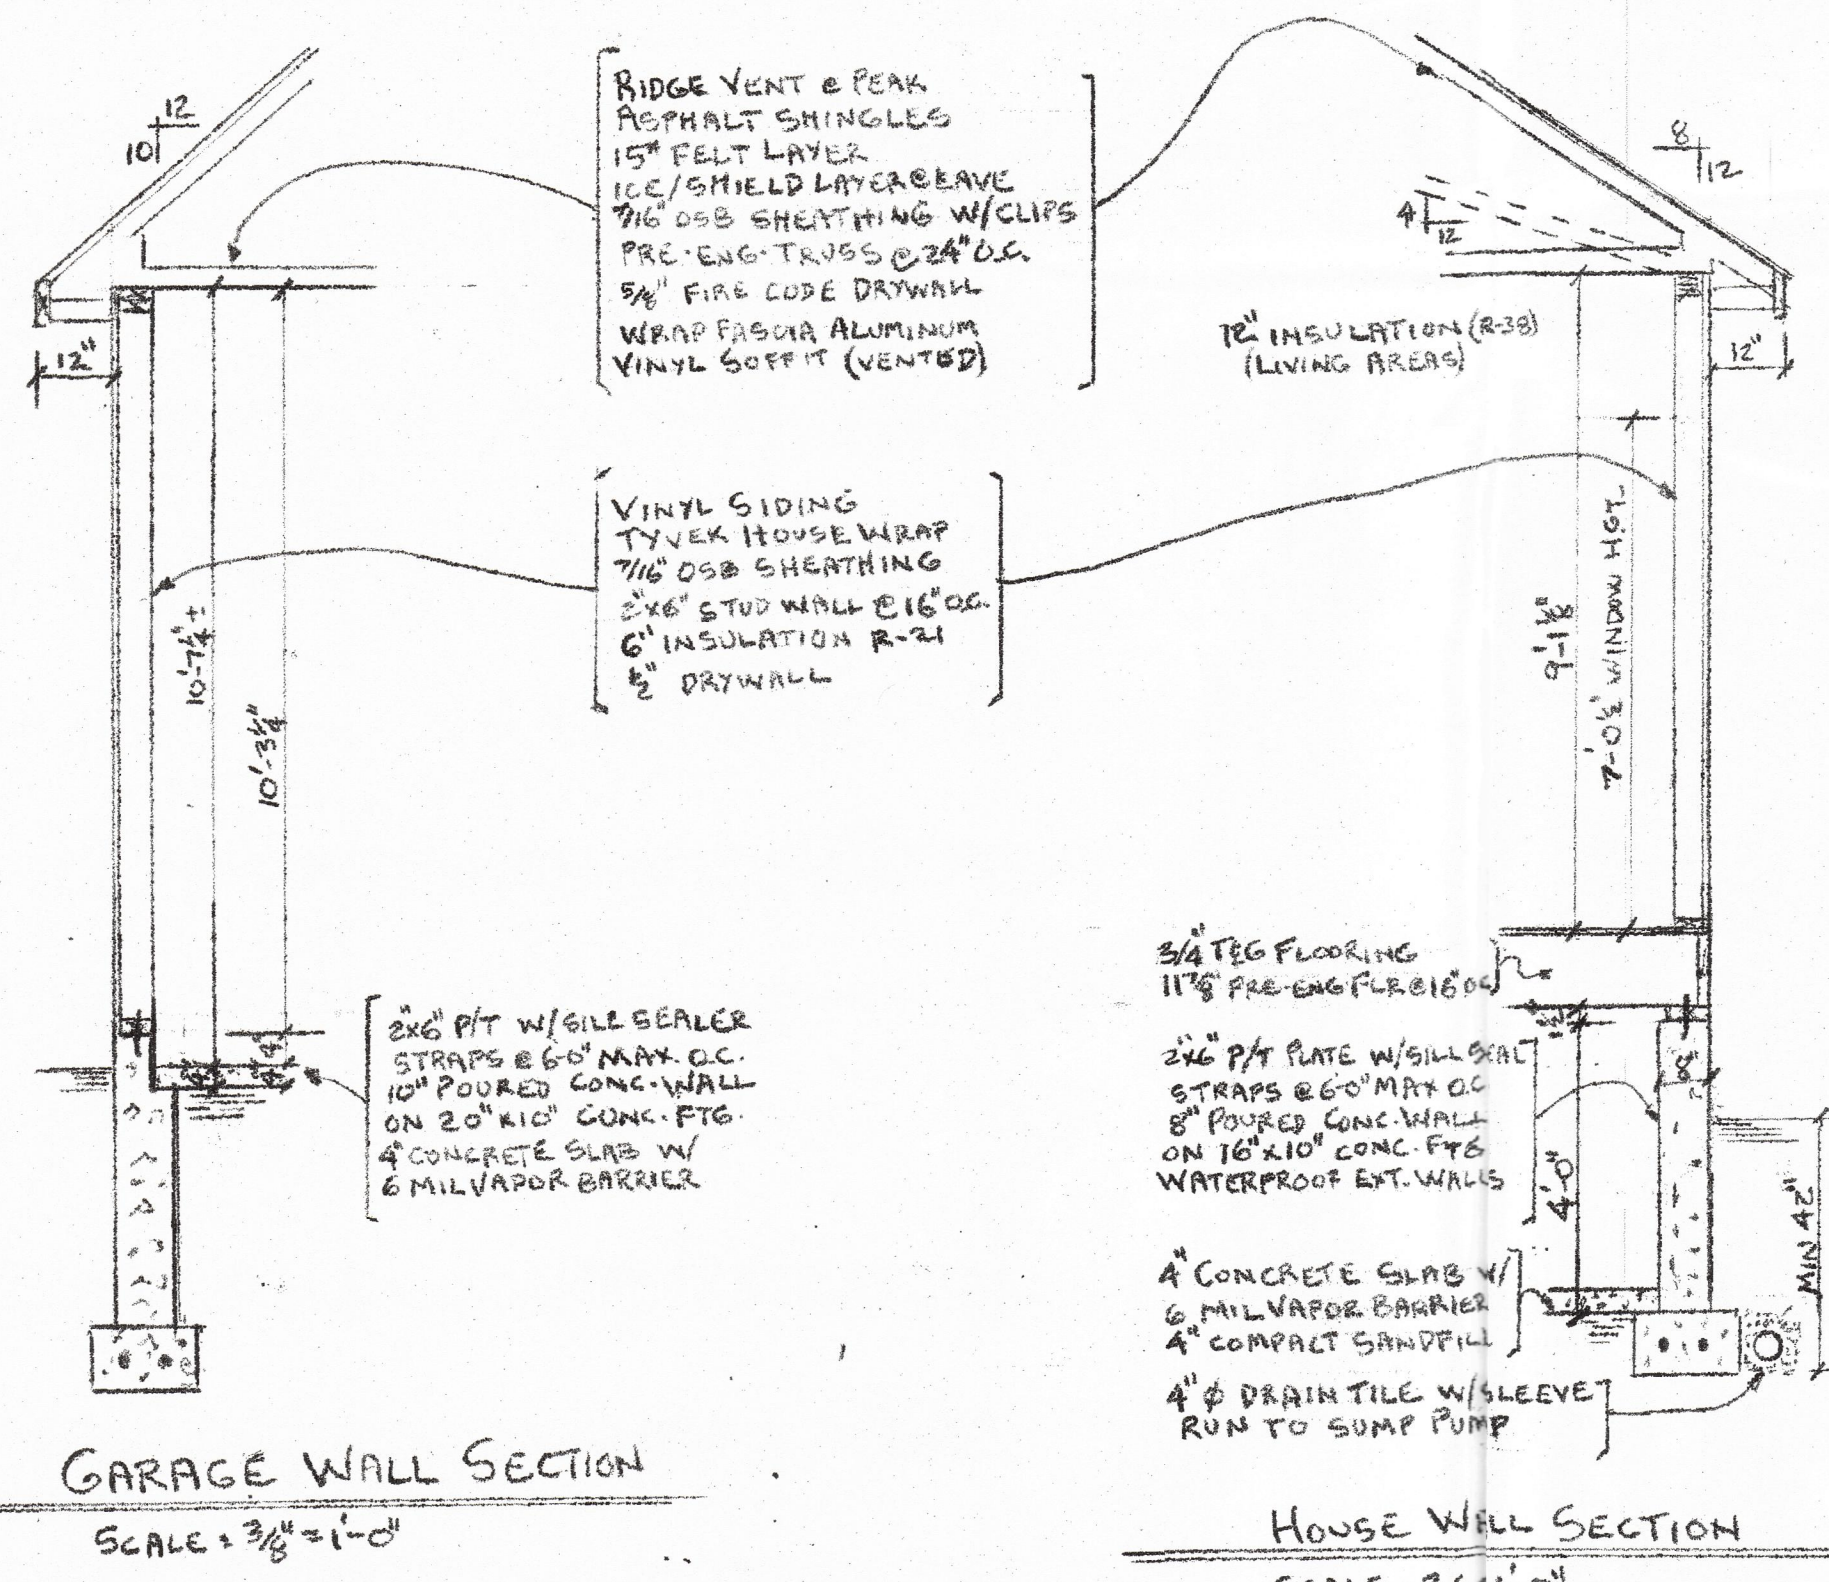 12
10
RIDGE VENT @ PEAK
ASPHALT SHINGLES
15# FELT LAYER
ICE/SHIELD LAYER @ EAVE
7/16" OSB SHEATHING W/CLIPS
PRE-ENG. TRUSS @ 24" O.C.
5/8" FIRE CODE DRYWALL
WRAP FASCIA ALUMINUM
VINYL SOFFIT (VENTED)
8
12
4
12
12" INSULATION (R-38)
(LIVING AREAS)
12"
12"
VINYL SIDING
TYVEK HOUSE WRAP
7/16" OSB SHEATHING
2"x6" STUD WALL @ 16" O.C.
6" INSULATION R-21
1/2" DRYWALL
10'-7 1/4" ±
10'-3 1/4"
9'-1 1/8"
WINDOW HGT.
2"x6" P/T W/SILL SEALER
STRAPS @ 6'-0" MAX. O.C.
10" POURED CONC. WALL
ON 20"x10" CONC. FTG.
4" CONCRETE SLAB W/
6 MIL VAPOR BARRIER
4"
4"
3/4" T&G FLOORING
11 7/8" PRE-ENG FLR @ 16" OC
2"x6" P/T PLATE W/SILL SEAL
STRAPS @ 6'-0" MAX O.C
8" POURED CONC. WALL
ON 16"x10" CONC. FTG
WATERPROOF EXT. WALLS
8"
4'-0"
42" MIN
4" CONCRETE SLAB W/
6 MIL VAPOR BARRIER
4" COMPACT SANDFILL
4" ϕ DRAIN TILE W/SLEEVE
RUN TO SUMP PUMP
GARAGE WALL SECTION
SCALE: 3/8" = 1'-0"
HOUSE WALL SECTION